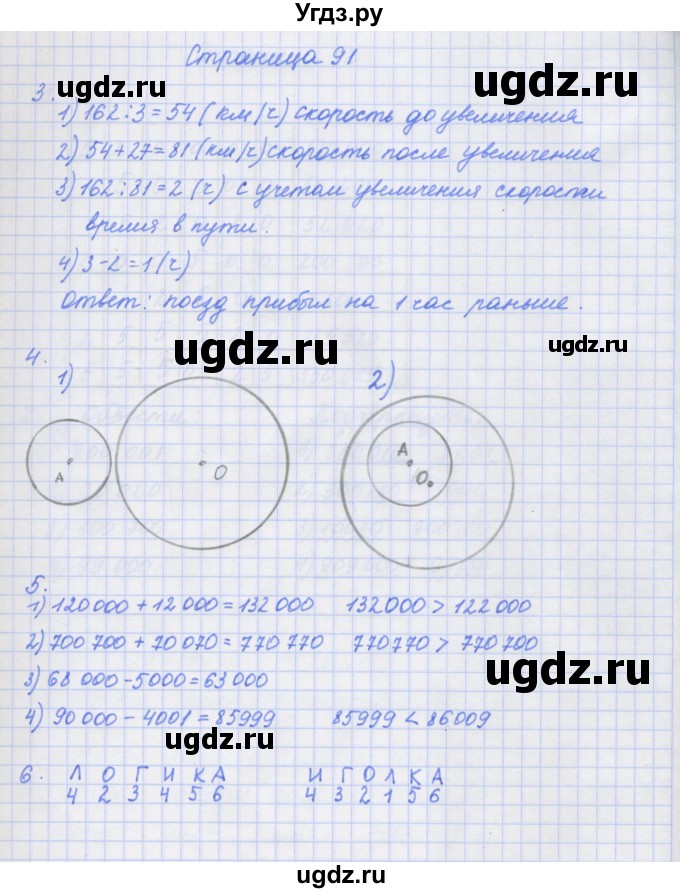 Угдз.ру
Страница 91
ugdz.ru
ugdz.ru
3.
1) 162:3=54 (км/ч) скорость до увеличения
2) 54+27=81 (км/ч) скорость после увеличения
3) 162:81=2 (ч) с учетом увеличения скорости
время в пути.
4) 3-2=1 (ч)
Ответ: поезд прибыл на 1 час раньше.
ugdz.ru
ugdz.ru
4.
1)
2)
А
О
А
О
5.
1) 120 000 + 12 000 = 132 000 132 000 > 122 000
2) 700 700 + 70 070 = 770 770 770 770 > 770 700
3) 68 000 - 5000 = 63 000
ugdz.ru
4) 90 000 - 4001 = 85999 85999 < 86009
ugdz.ru
6. Л О Г И К А И Г О Л К А
4 2 3 4 5 6 4 3 2 1 5 6
ugdz.ru
ugdz.ru